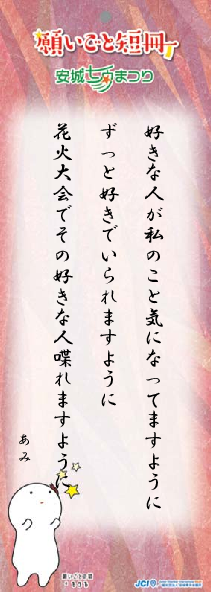 願いごと短冊
安城七夕まつり
好きな人が私のこと気になってますように
ずっと好きでいられますように
花火大会でその好きな人喋れますように
あみ
JCI